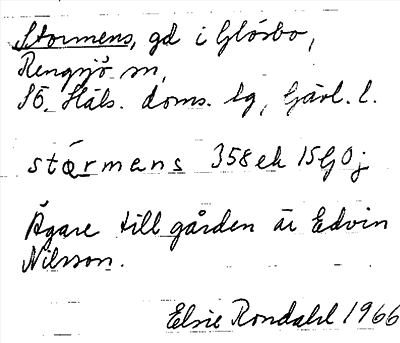 Stormens, gd i Glösbo,
Rengsjö sn,
SÖ. Häls. doms. lg, Gävl. l.
stɷrmens 358 ek 15G0j
Ägare till gården är Edvin
Nilsson.
Elsie Rondahl 1966